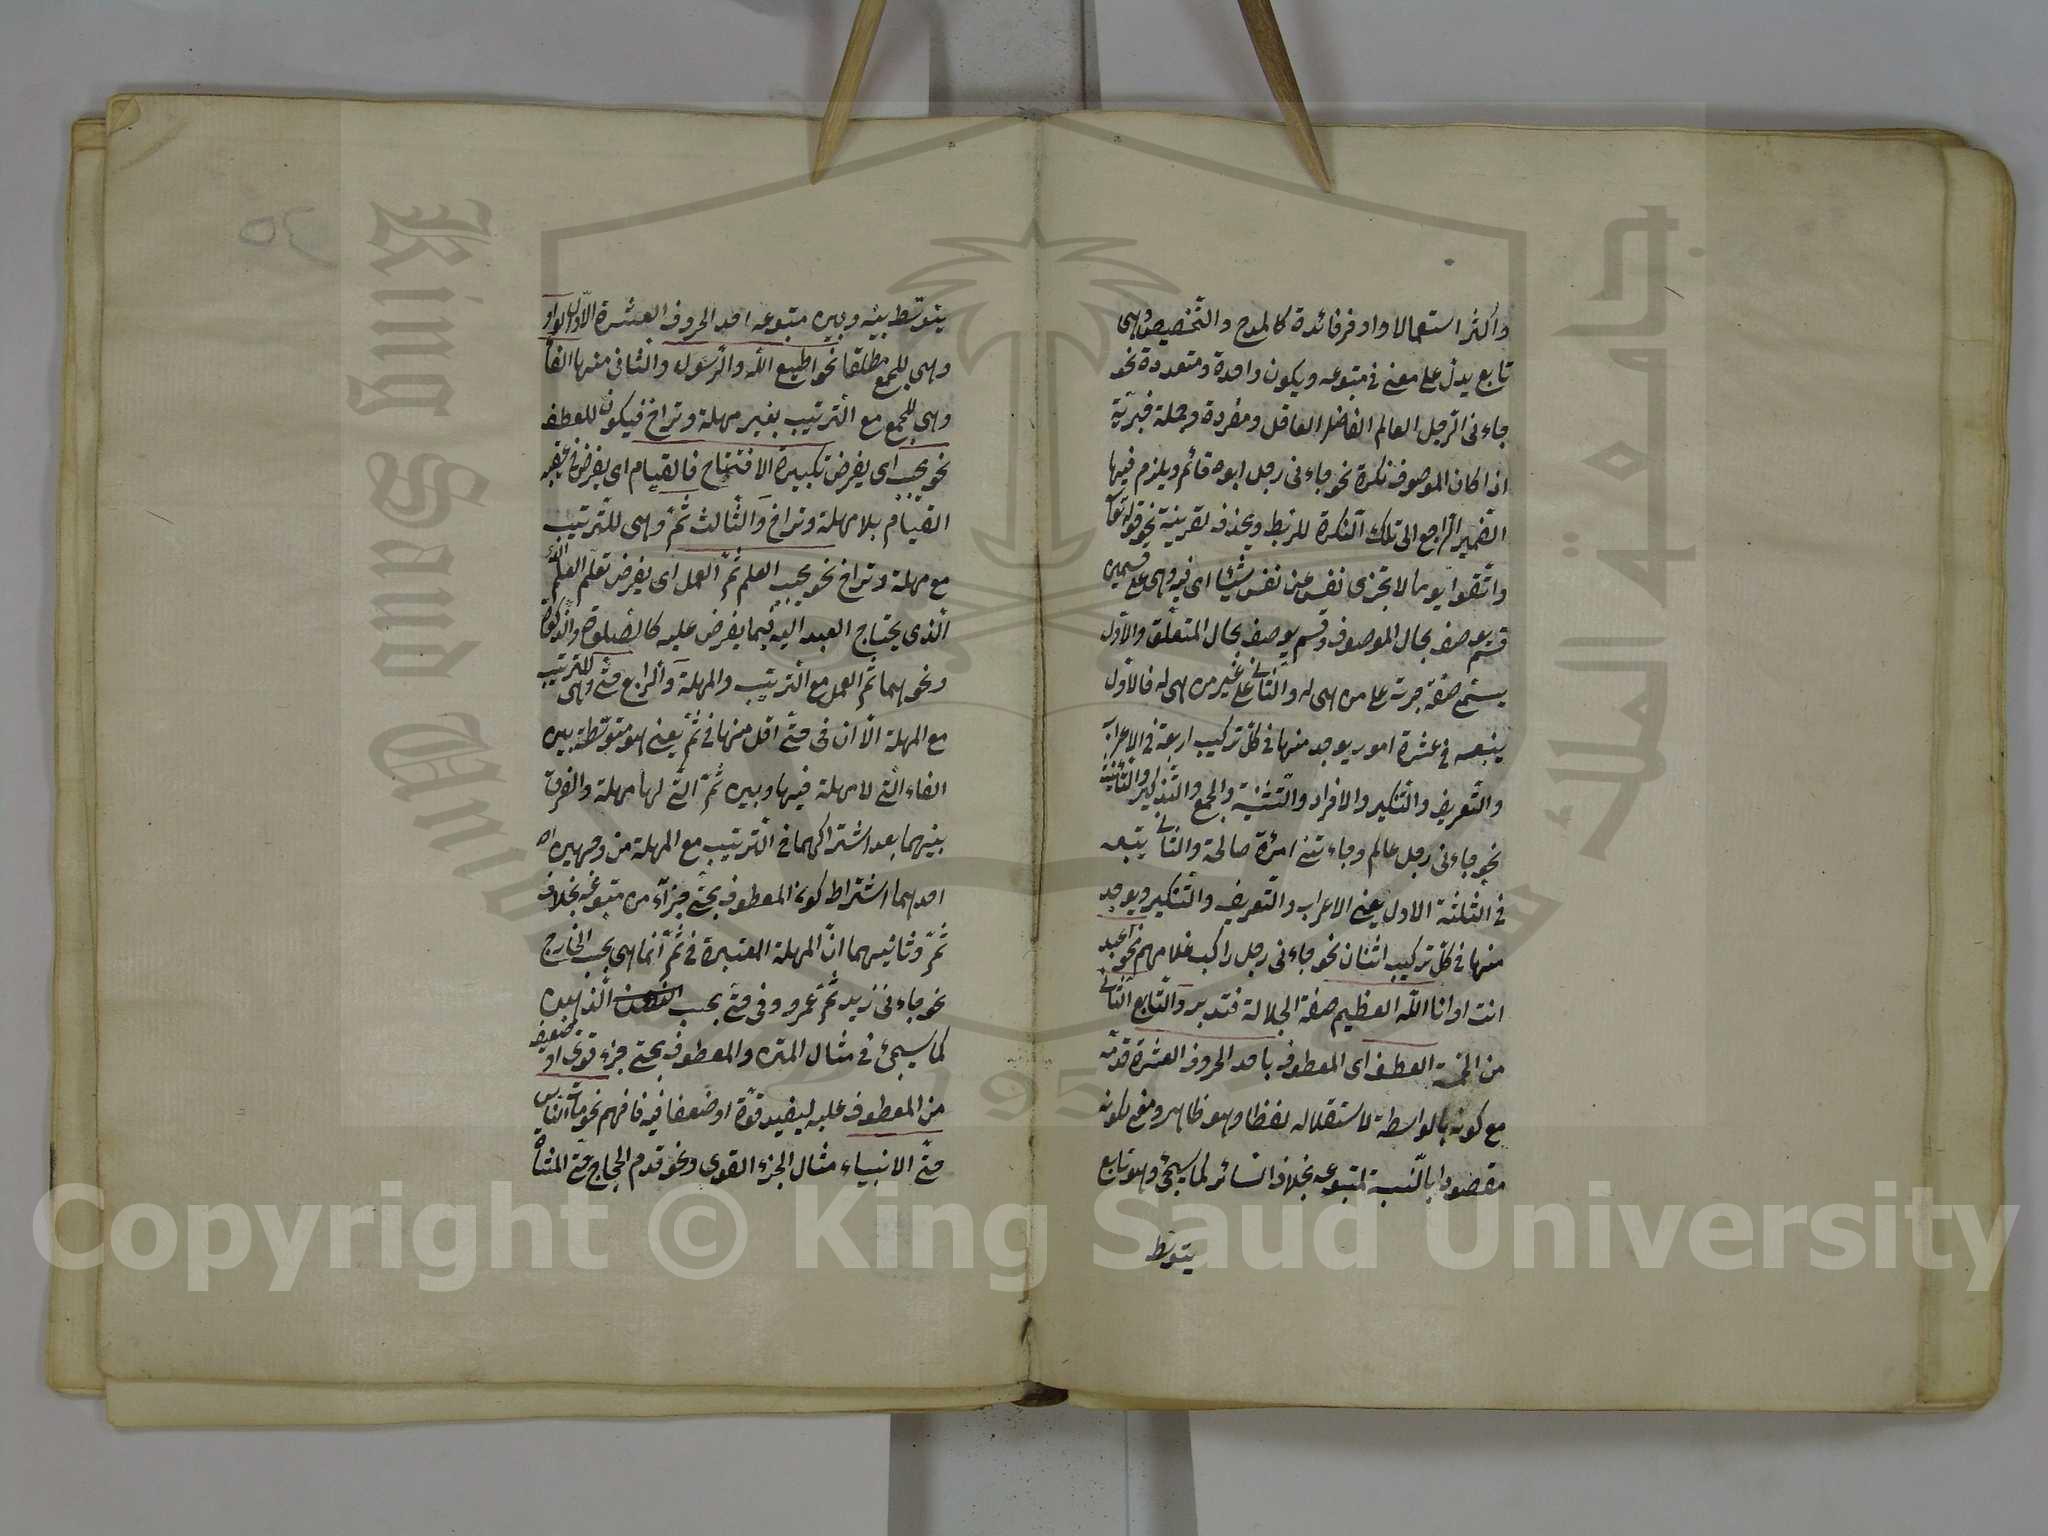 واكثر استعمالا واوفر فائدة كالمدح والتخصيص وهى
تابع يدل على معنى فى متبوعه ويكون واحدة ومتعددة نحو
جاءنى الرجل العالم الفاضل العاقل ومفردة وجملة خبرية
اذا كان الموصوف نكرة نحو جاءنى رجل ابوه قائم ويلزم فيها
الضمير الراجع الى تلك النكرة للربط ويحذف لقرينة نحو قوله تعا
واتقوا يوما لا تجزى نفس عن نفس شيئا اى فيه وهى على قسمين
قسم يوصف بحال الموصوف وقسم يوصف بحال المتعلق والاول
يسمى صفة جرت على من هى له والثانى على غير من هى له فالاول
يتبعه فى عشرة امور يوجد منها فى كل تركيب اربعة فى الاعراب
والتعريف والتنكير والافراد والتثنية والجمع والتذكير والتأنيث
نحو جاءنى رجل عالم وجاءتنى امرئة صالحة والثانى يتبعه
فى الثلثة الاول يعنى الاعراب والتعريف والتنكير ويوجد
منها فى كل تركيب اثنان نحو جاءنى رجل راكب غلامهم نحو اعبد
انت اوانا الله العظيم صفة الجلالة فتدبر والتابع الثانى
من الخمسة العطف اى المعطوف باحد الحروف العشرة قدمه
مع كونه بالواسطة لاستقلاله لفظا وهو ظاهر ومعنى لكونه
مقصودا بالنسبة لمتبوعه بخلاف السائر لما سيجئ وهو تابع
يتوسط
يتوسط بينه وبين متبوعه احد الحروف العشرة الاول الواو
وهى للجمع مطلقا نحو اطيع الله والرسول والثانى منها الفا
وهى للجمع مع الترتيب بغير مهلة وتراخ فيكون للعطف
نحو يجب اى يفرض تكبيرة الافتتاح فالقيام اى يفرض فى عقبه
القيام بلا مهلة وتراخ والثالث ثم وهى للترتيب
مع مهلة وتراخ نحو يجب العلم ثم العمل اى يفرض تعلم العلم
الذى يحتاج العبد اليه فيما يفرض عليه كالصلوة والزكوة
ونحوهما ثم العمل مع الترتيب والمهلة والرابع حتى وهى للترتيب
مع المهلة الا ان فى حتى اقل منها فى ثم يعنى هو متوسطة بين
الفاء التى لا مهلة فيها وبين ثم التى لها مهلة والفرق
بينهما بعد اشتراكهما فى الترتيب مع المهلة من وجهين اه
احدهما اشتراط كون المعطوف بحتى جزأ من متبوعه بخلاف
ثم وثانيهما ان المهلة المعتبرة فى ثم انما هى بحسب الخارج
نحو جاءنى زيد ثم عمرو وفى حتى بحسب الذهن
كما سيجئ فى مثال المتن والمعطوف بحتى جزء قوى او ضعيف
من المعطوف عليه ليفيد قوة او ضعفا فيه فافهم نحو مات الناس
حتى الانبياء مثال الجزء القوى ونحو قدم الحجاج حتى المشاة
King Saud University
جامعة الملك سعود
1957
Copyright © King Saud University